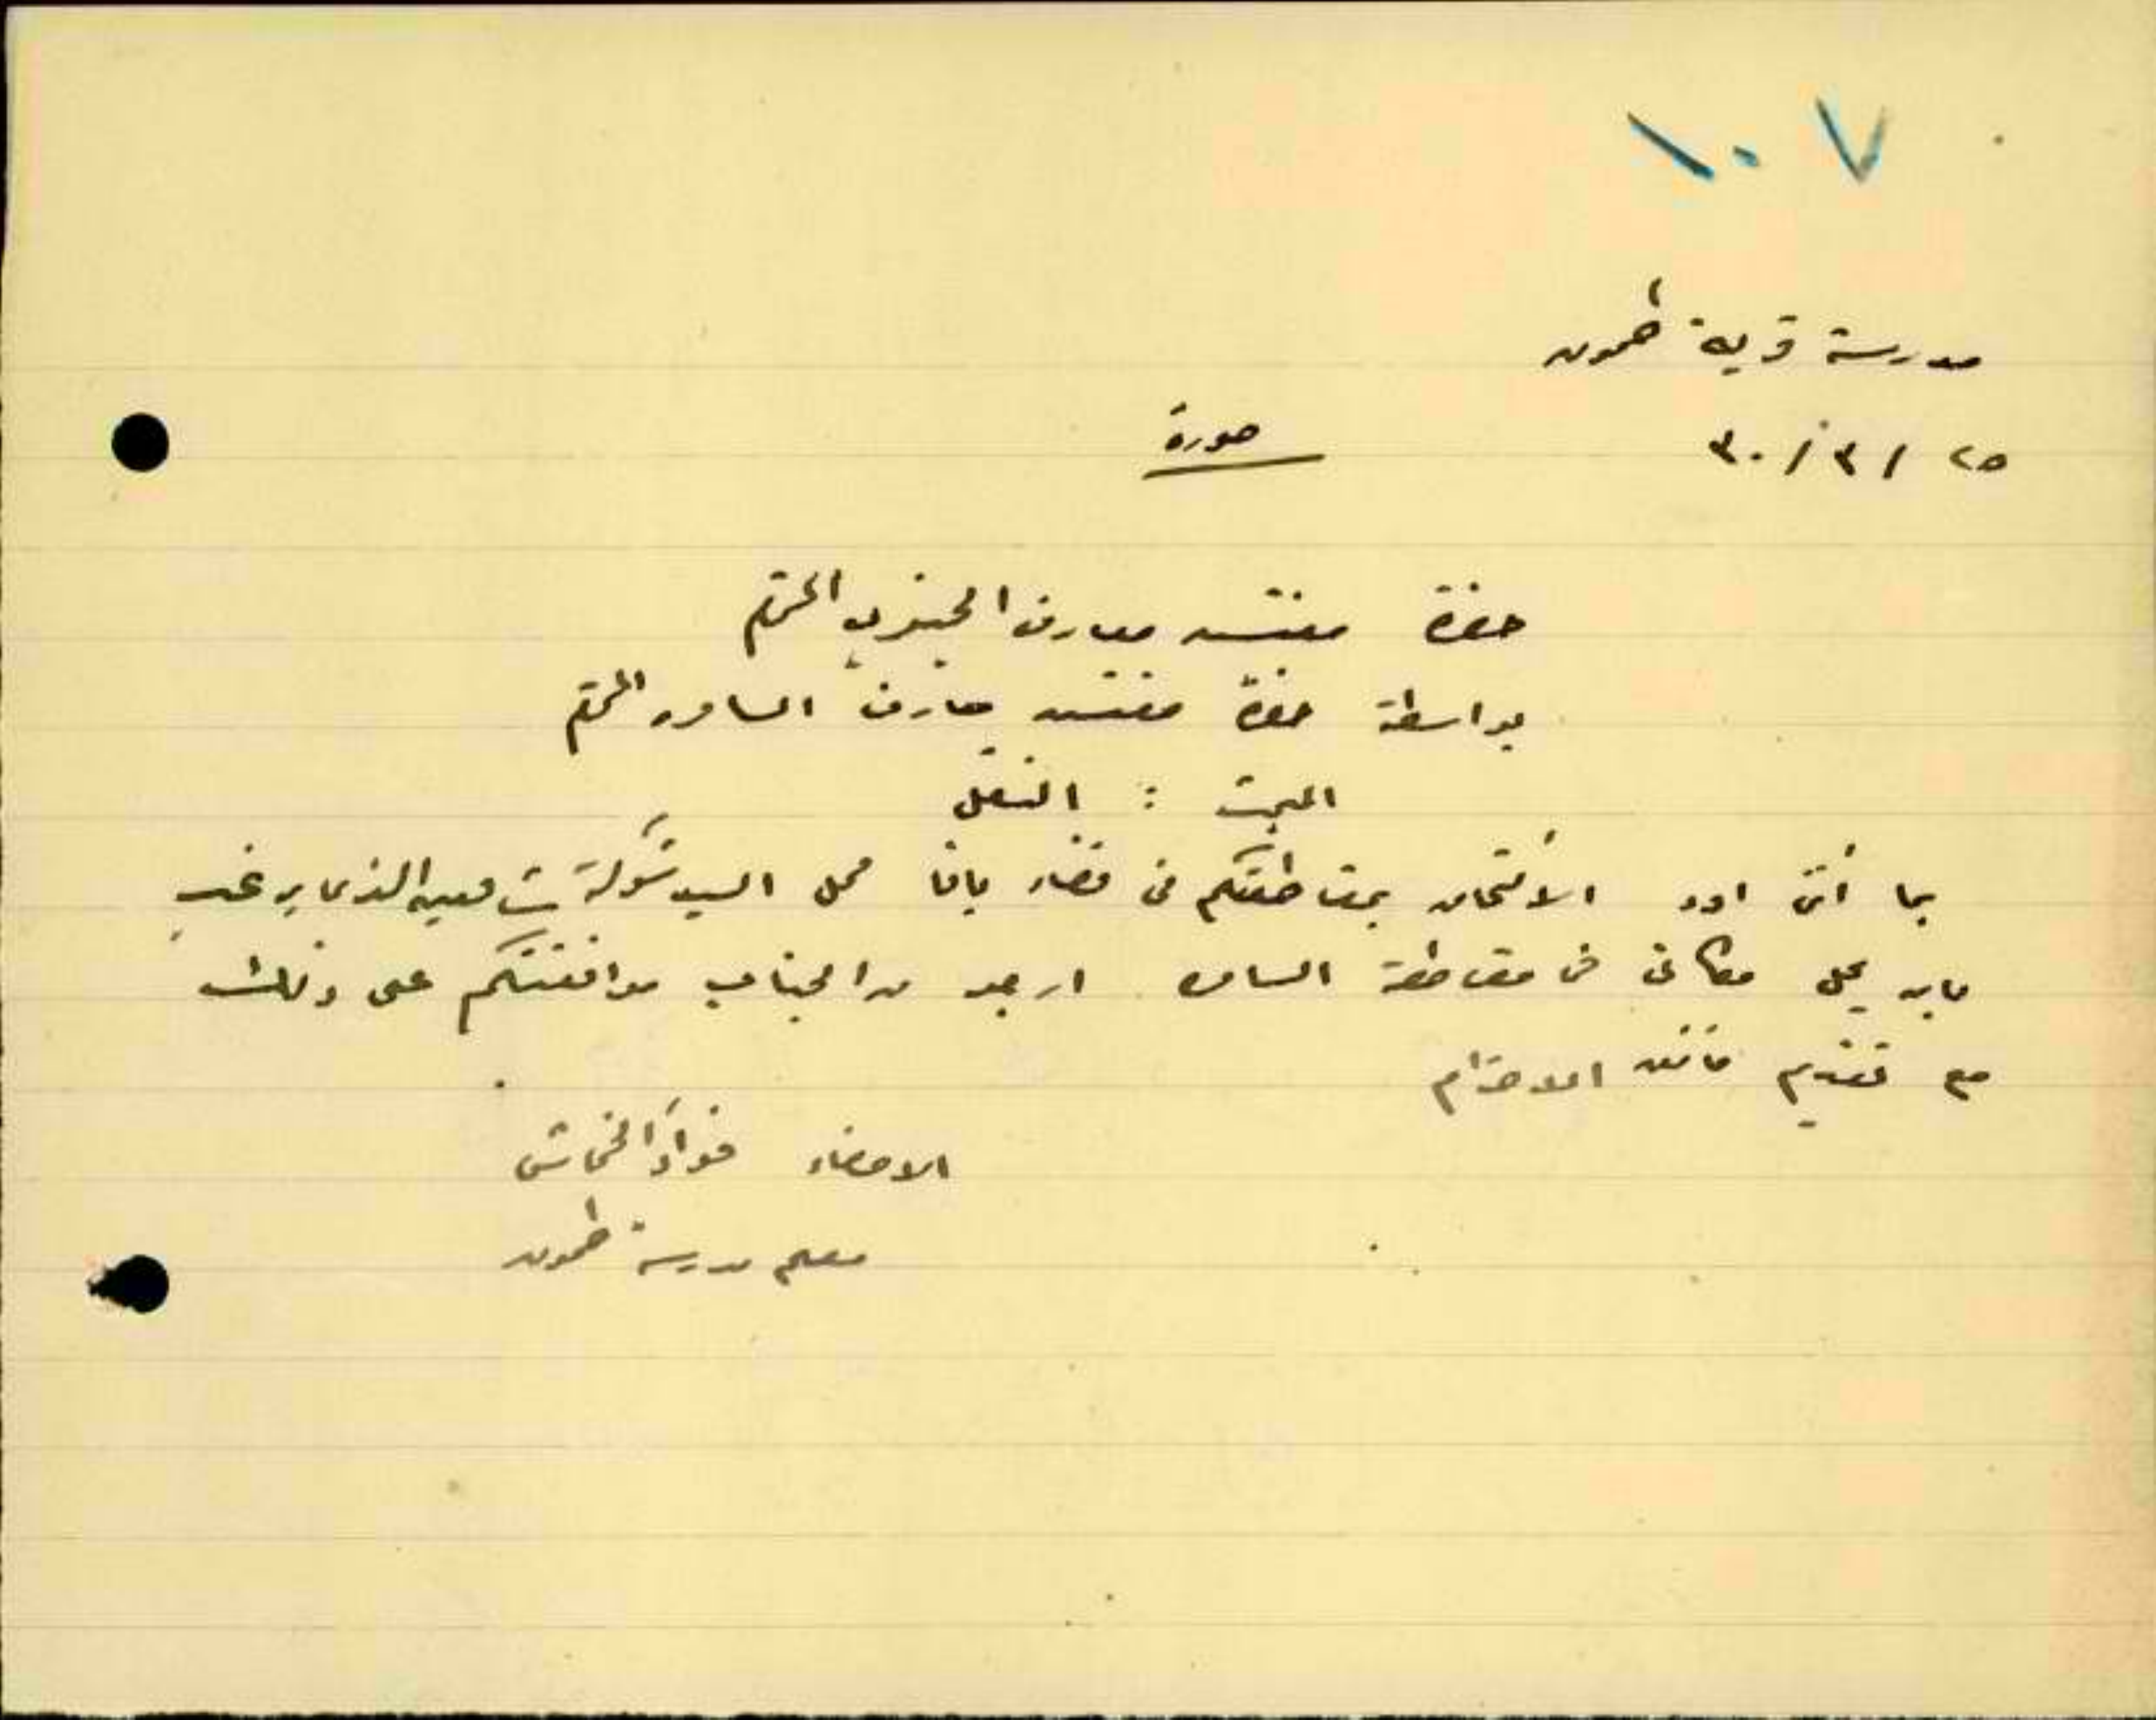 ١٠٧
مدرسة قرية طمون
٢٥ / ٣ / ٣٠
صورة
حضرة مفتش معارف الجنوب المحترم
بواسطة حضرة مفتش معارف السامره المحترم
المبحث : النقل
بما أنني اود الألتحاق بمقاطعتكم في قضاء يافا محل السيد شوكة الذي يرغب
بان يحل مكاني في مقاطعة السامره ارجو من الجناب موافقتكم على ذلك
مع تقديم فائق الاحترام
الامضاء فؤاد الخماش
معلم مدرسة طمون